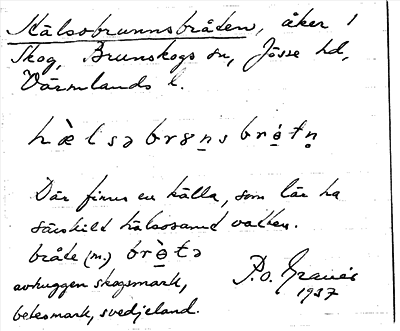 Hälsobrunnsbråten, åker i
Skog, Brunskogs sn, Jösse hd,
Värmlands l.
hæ̀lsəbrȣn̥sbrótn̥
Där finns en källa, som lär ha
särskilt hälsosamt vatten.
bråte (m.) brò̤tə
avhuggen skogsmark,
betesmark, svedjeland.
P.O.
1937